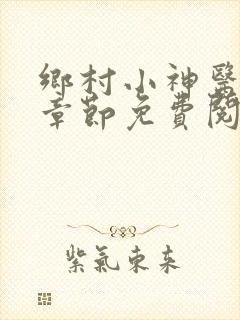 鄉村小神醫
章節免費閱
紫氣東來